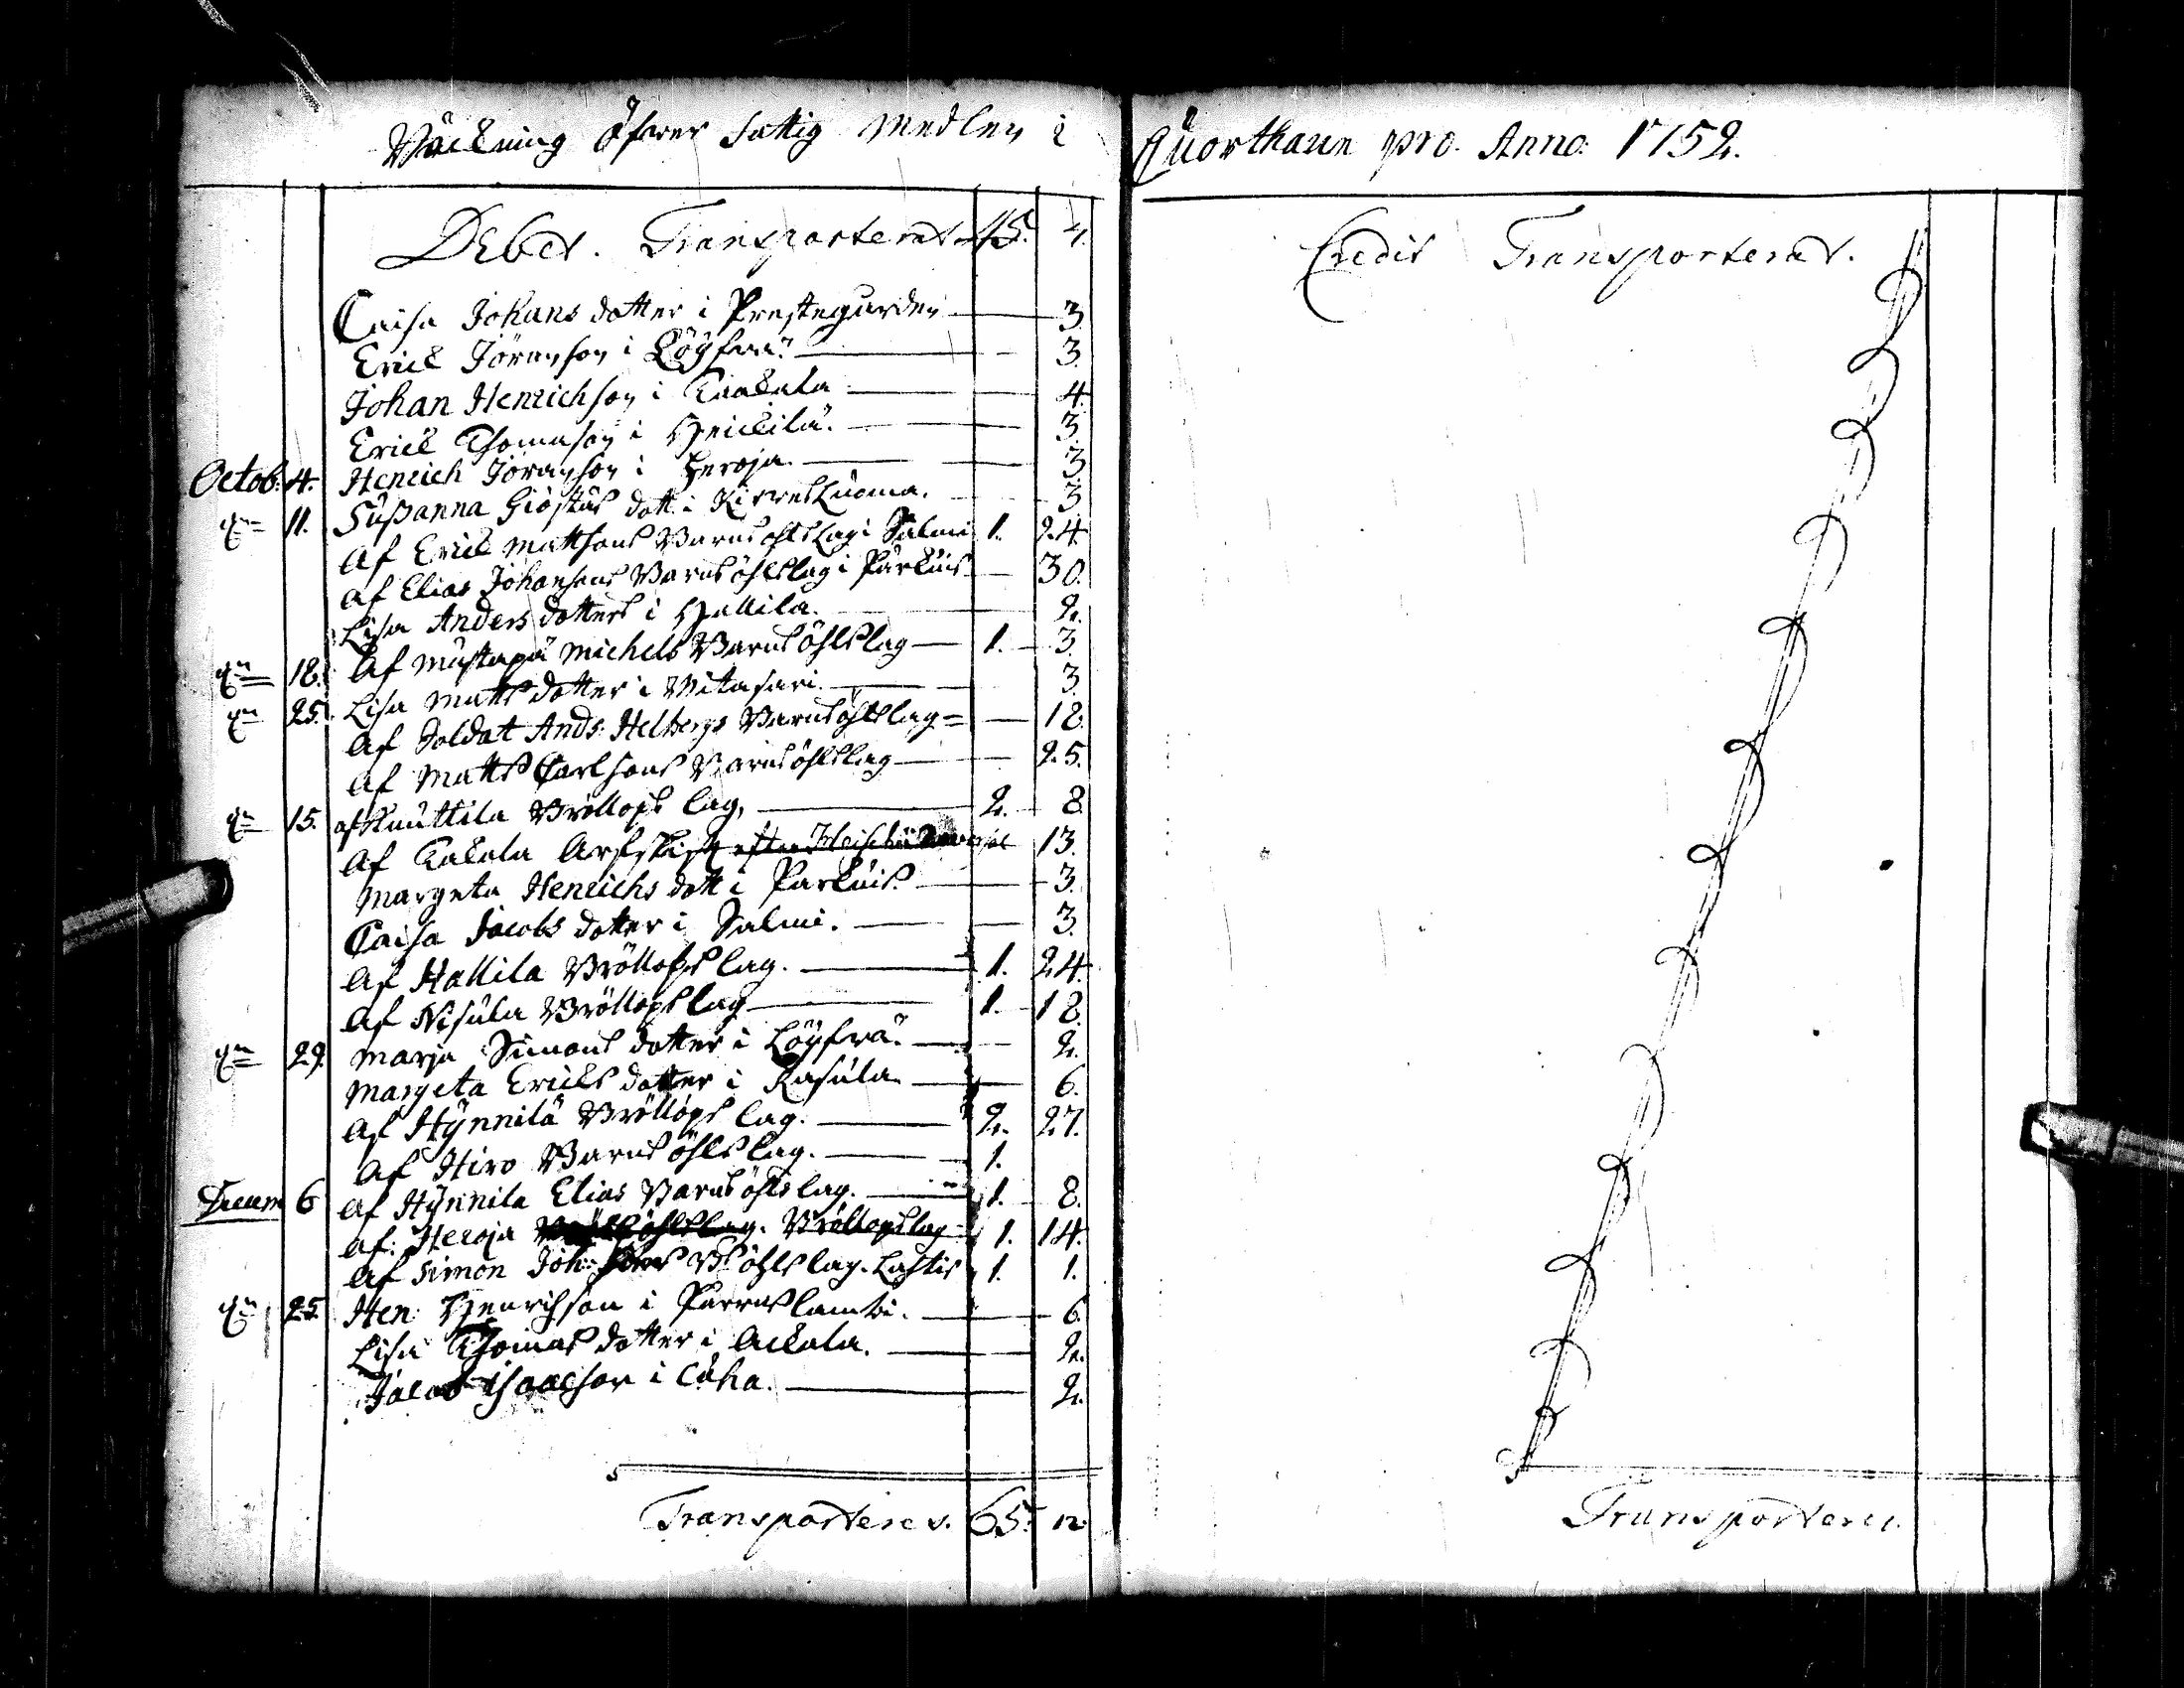 Räckning öfwer fattig Medlen i Quorthane pro. Anno: 1752.
Debet. Transporterat 45. 4.
Caisa Johans dotter i Prestegården 3.
Erick Jöranson i Löyfwä 3.
Johan Henrichson i Kackala 4.
Erick Thomason i Heickilä 3.
Octob: 4. Henrich Jöranson i Heroja 3
11. Sußanna Giöstas dott. i Kirres Luoma. 3
Af Erick Mattsons Barnsöhlslag i Salmi 1. 24.
Af Elias Johansons Barnsöhlslag i 30.
Lisa Anders dotters i Hallila. 2.
Af Mustapä Michels Barnsöhlslag 1. 3.
18. Lisa Matts dotter i 3.
25. Af Soldat Ands: Helbergs Barnsöhlslag 18.
Af Matts Carlsons Barnsöhlslag 25.
15. af Knuttila Bröllops lag, 2. 8.
Af Kakala 13.
Margeta Henrichs dott i 3.
Caisa Jacobs dotter i Salmi. 3.
Af Hallila Bröllops lag. 1. 24.
Af Nisula Bröllops lag 1. 18.
29. Marja Simons dotter i Löyfwä. 2.
Margeta Ericks dotter i Rasula 6.
Af Hynnilä Bröllops lag. 2. 27.
Af Hiro Barnsöhls lag. 1.
Decem 6 Af Hynnila Elias Barnsöhls lag. 1. 8.
Af: Heroja Bröllopslag 1. 14.
Af Simon Joh: Sons 1. 1.
25. Hen: Henrichson i 6.
Lisa Thomas dotter i Ackala. 2.
Jacob Isaacson i Luha. 2.
Transporteres. 65. 12.
Credit Transporterat.
Transporteres.